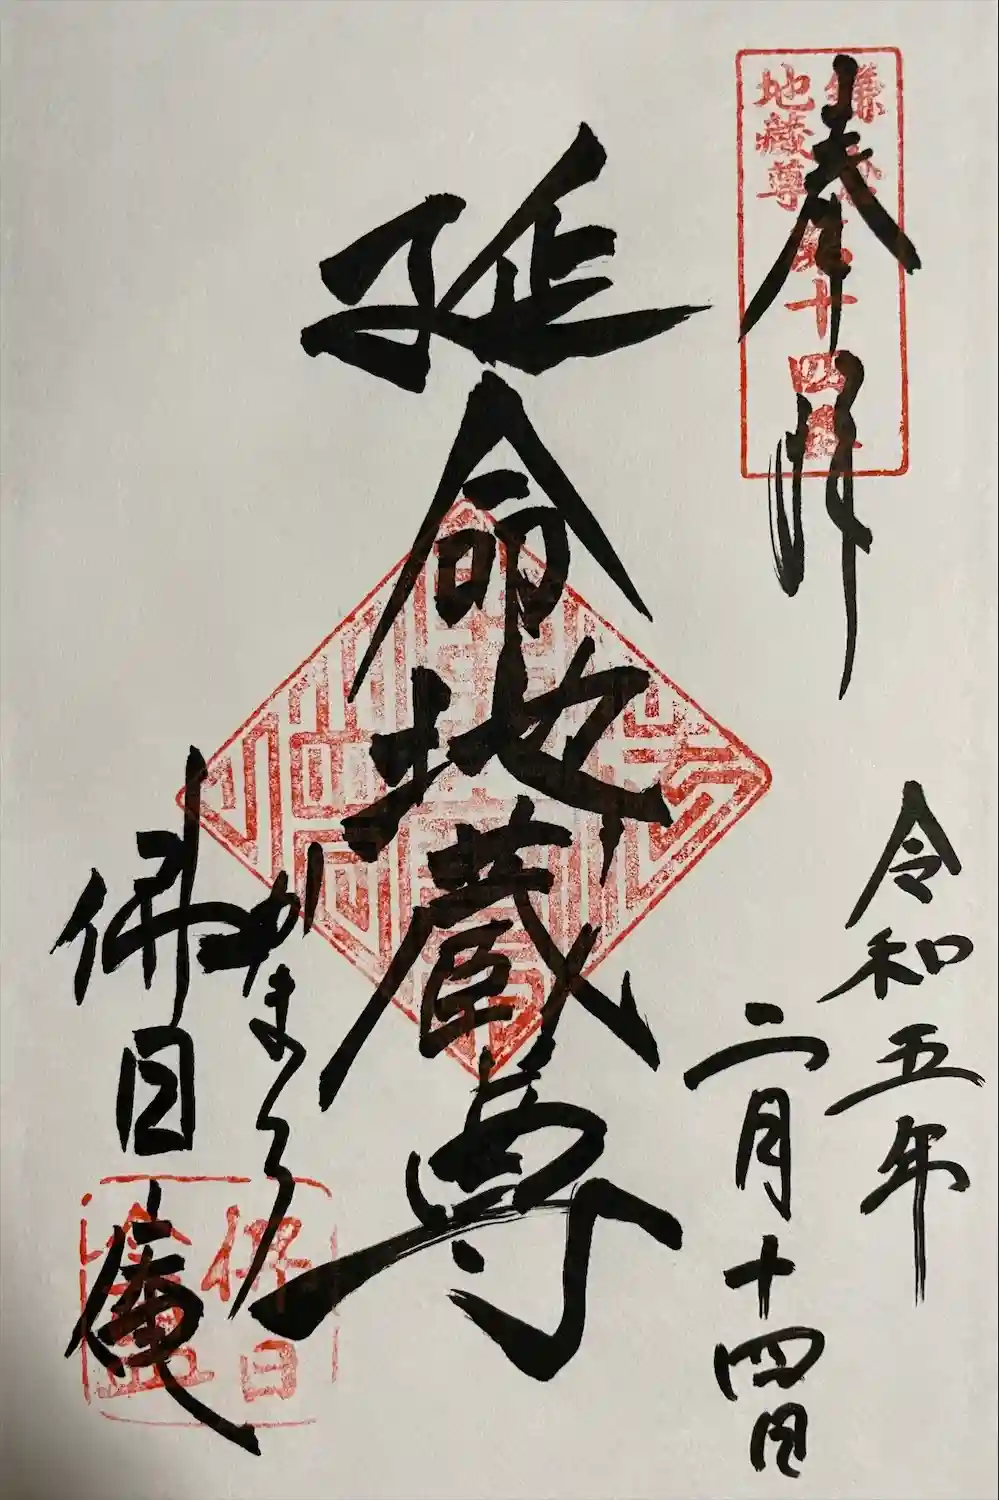 奉拝
鎌倉二十四番
地蔵尊
令和五年
二月十四日
延命地蔵尊
かまくら
佛日庵
佛日
庵